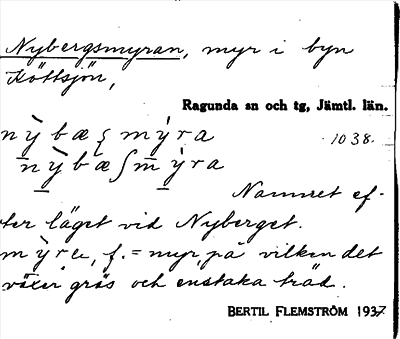 Nybergsmyran, myr i byn
Köttsjön,
Ragunda sn och tg, Jämtl. län.
1038.
Namnet ef-
ter läget vid Nyberget.
f. = myr, på vilken det
växer gräs och enstaka träd.
BERTIL FLEMSTRÖM 1937